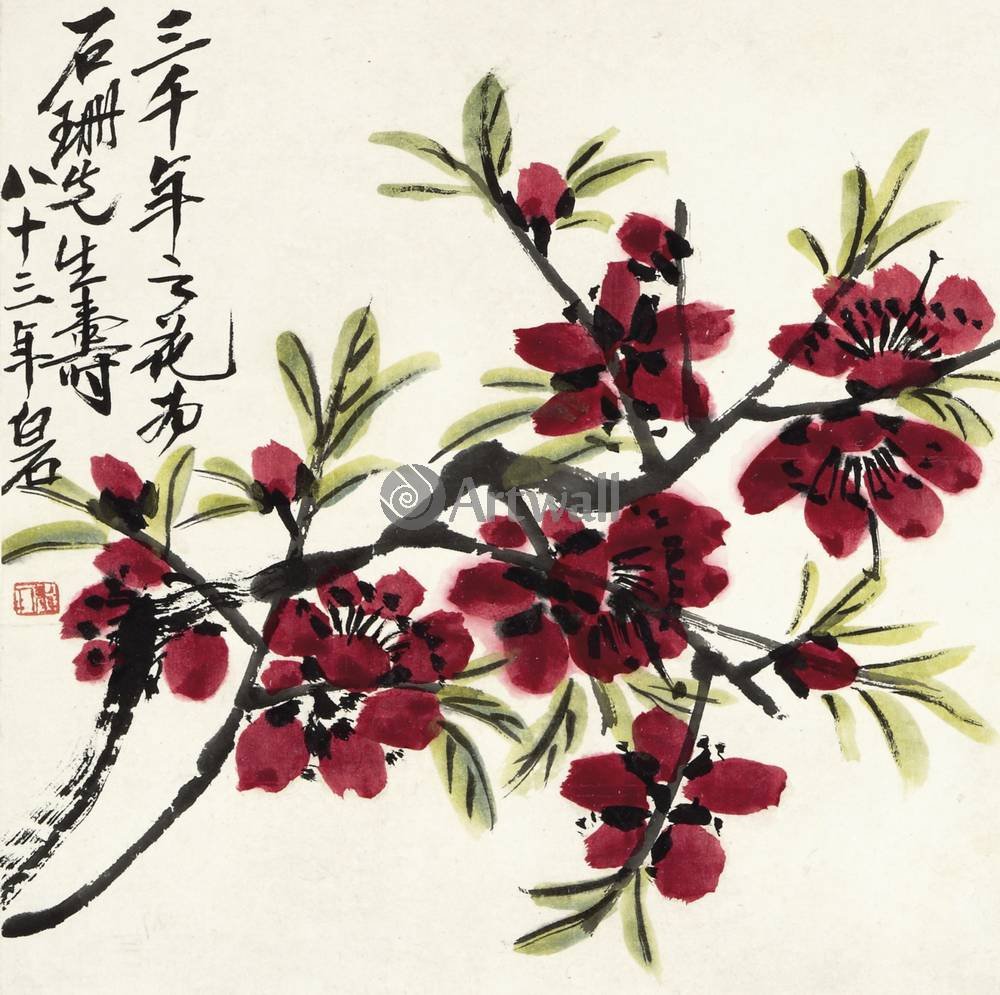 三千年之花为
石珊先生壽
八十三年白石
Artwall